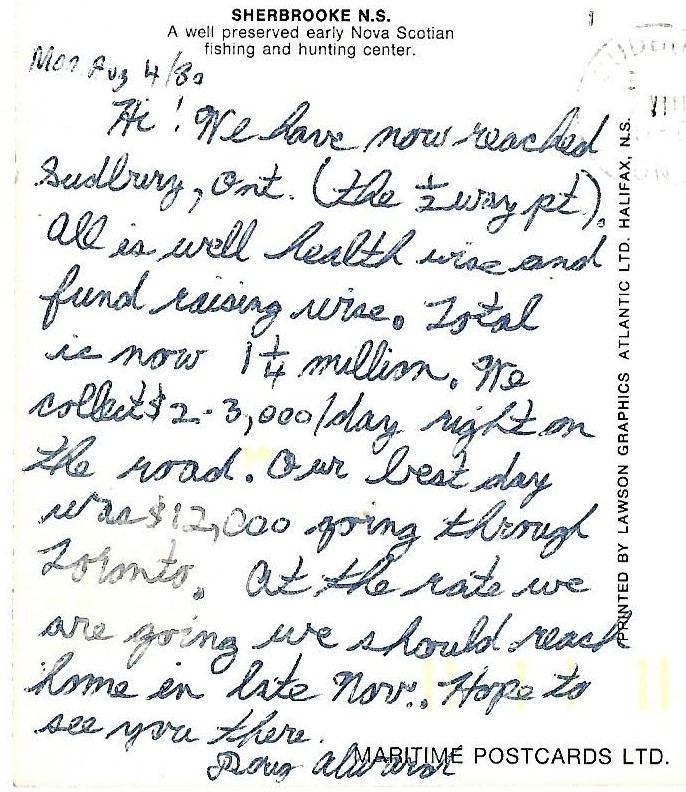 SHERBROOKE N.S.
A well preserved early Nova Scotian
fishing and hunting center.
Mon. Aug 4/80
Hi! We have now reached
Sudbury, Ont. (the ½ way pt).
All is well health wise and
fund raising wise. Total
is now 1¼ million. We
collect $2-3,000/day right on
the road. Our best day
was $12,000 going through
Toronto. At the rate we
are going we should reach
home in late Nov.. Hope to
see you there.
Doug Alward
MARITIME POSTCARDS LTD.
PRINTED BY LAWSON GRAPHICS ATLANTIC LTD. HALIFAX, N.S.